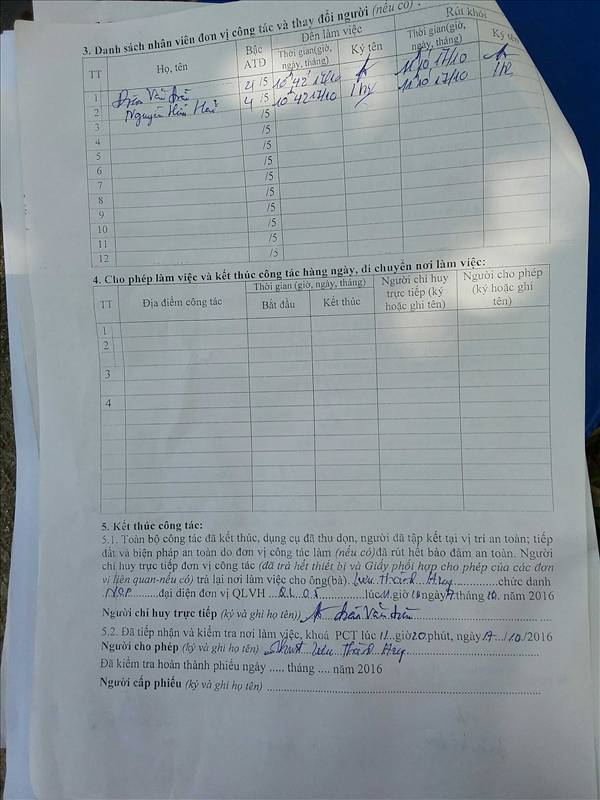 3. Danh sách nhân viên đơn vị công tác và thay đổi người (nếu có) :
TT Họ, tên Bậc ATĐ Đến làm việc Rút khỏi
Thời gian(giờ, ngày, tháng) Ký tên Thời gian(giờ, ngày, tháng) Ký tên
1 Văn 4 /5 10h42 17/10 11h10 17/10
2 Nguyễn Hữu 4 /5 10h42 17/10 11h10 17/10
3 /5
4 /5
5 /5
6 /5
7 /5
8 /5
9 /5
10 /5
11 /5
12 /5
4. Cho phép làm việc và kết thúc công tác hàng ngày, di chuyển nơi làm việc:
TT Địa điểm công tác Thời gian (giờ, ngày, tháng) Người chỉ huy trực tiếp (ký hoặc ghi tên) Người cho phép (ký hoặc ghi tên)
Bắt đầu Kết thúc
1
2
3
4
5. Kết thúc công tác:
5.1. Toàn bộ công tác đã kết thúc, dụng cụ đã thu dọn, người đã tập kết tại vị trí an toàn; tiếp
đất và biện pháp an toàn do đơn vị công tác làm (nếu có)đã rút hết bảo đảm an toàn. Người
chỉ huy trực tiếp đơn vị công tác (đã trả hết thiết bị và Giấy phối hợp cho phép của các đơn
vị liên quan-nếu có) trả lại nơi làm việc cho ông(bà). Lưu Thành ..............chức danh
.........đại diện đơn vị QLVH ..................lúc 11 giờ 10 ngày 17 tháng 10. năm 2016
Người chỉ huy trực tiếp (ký và ghi họ tên)) Văn
5.2. Đã tiếp nhận và kiểm tra nơi làm việc, khoá PCT lúc 11...giờ 20 phút, ngày 17 /10/2016
Người cho phép (ký và ghi họ tên) Lưu Thành
Đã kiểm tra hoàn thành phiếu ngày ..... tháng .... năm 2016
Người cấp phiếu (ký và ghi họ tên)